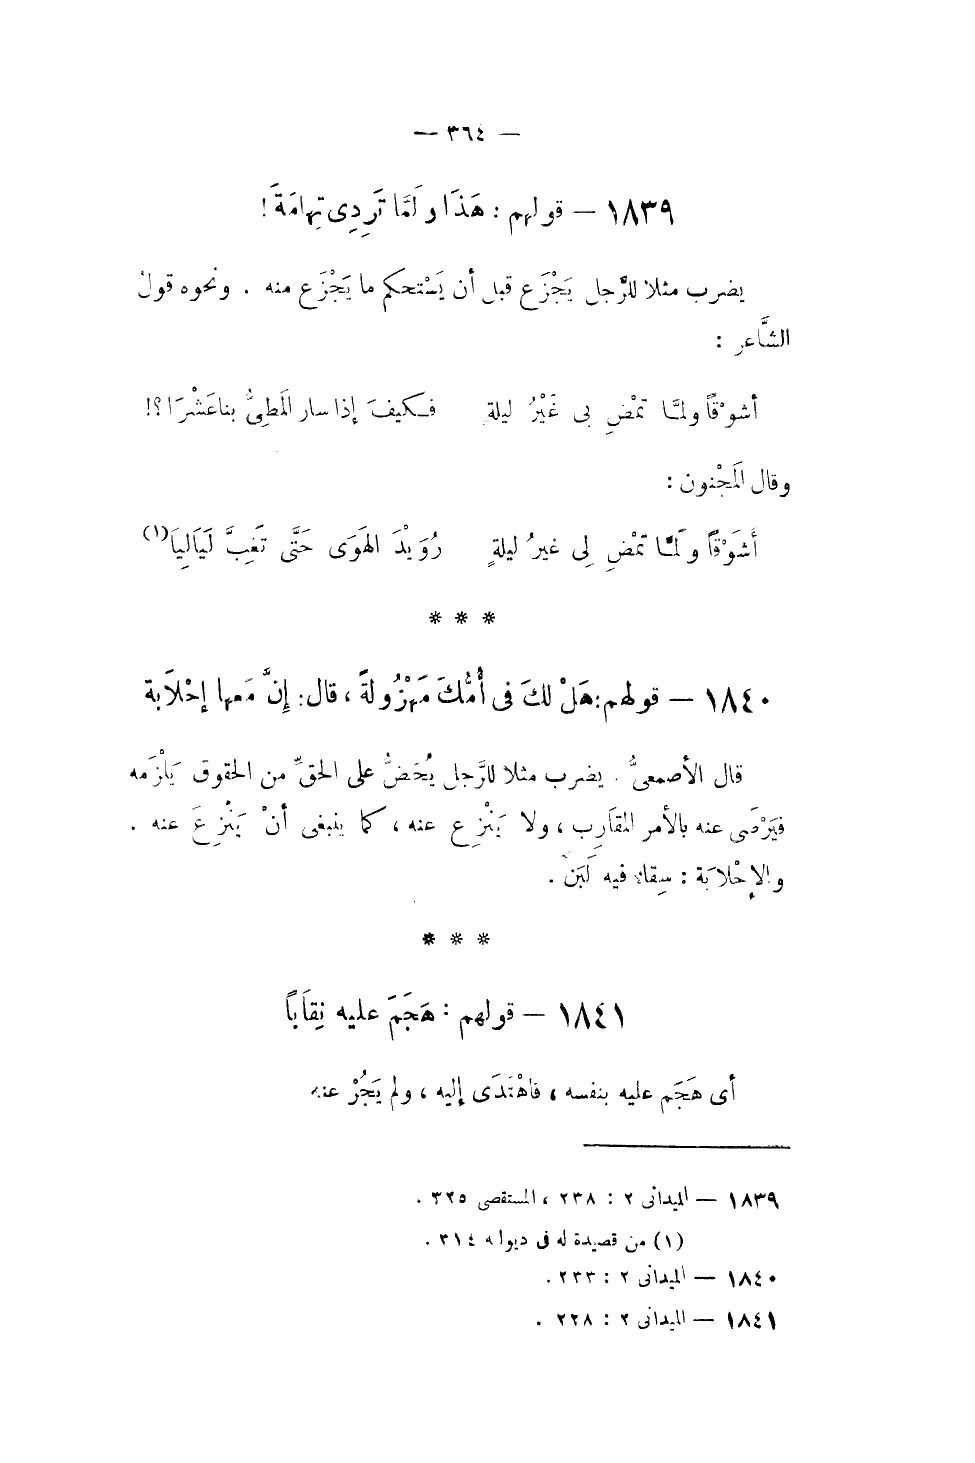 — ٣٦٤ —
١٨٣٩ — قولهم : هَذَا ولَمَّا تَرِدِى تِهامَةَ !
يضرب مثلا للرَّجل يَجْزَع قبل أن يَسْتحكم ما يَجْزَع منه . ونحوه قولُ
الشَّاعر :
أشوْقاً ولمَّا تمْضِ بى غَيْرُ ليلةٍ فكيفَ إذا سار المَطِىُّ بنا عَشْرَا ؟!
وقال المَجْنون :
أَشَوْقاً ولَمَّا تمْضِ لِى غيرُ ليلةٍ رُوَيْدَ الهَوَى حَتَّى تَغِبَّ لَيَالِيَا (١)
* * *
١٨٤٠ — قولهم : هَلْ لكَ فى أُمِّكَ مَهْزُولةً ، قال : إِنَّ مَعها إحْلاَبة
قال الأصمعىُّ . يضرب مثلا للرَّجل يُحَضُّ على الحقِّ من الحقوق يَلْزَمه
فيَرْضَى عنه بالأمر المقَارِب ، ولا يَنْزِع عنه ، كما ينبغى أنْ يَنْزِعَ عنه .
والإحْلابَة : سِقاء فيه لَبَنٌ .
* * *
١٨٤١ — قولهم : هَجَمَ عليه نِقَاباً
أى هَجَم عليه بنفسه ، فاهْتَدَى إليه ، ولم يَجُرْ عنه
١٨٣٩ — الميدانى ٢ : ٢٣٨ ، المستقصى ٣٢٥ .
(١) من قصيدة له فى ديوانه ٣١٤ .
١٨٤٠ — الميدانى ٢ : ٢٣٣ .
١٨٤١ — الميدانى ٢ : ٢٢٨ .